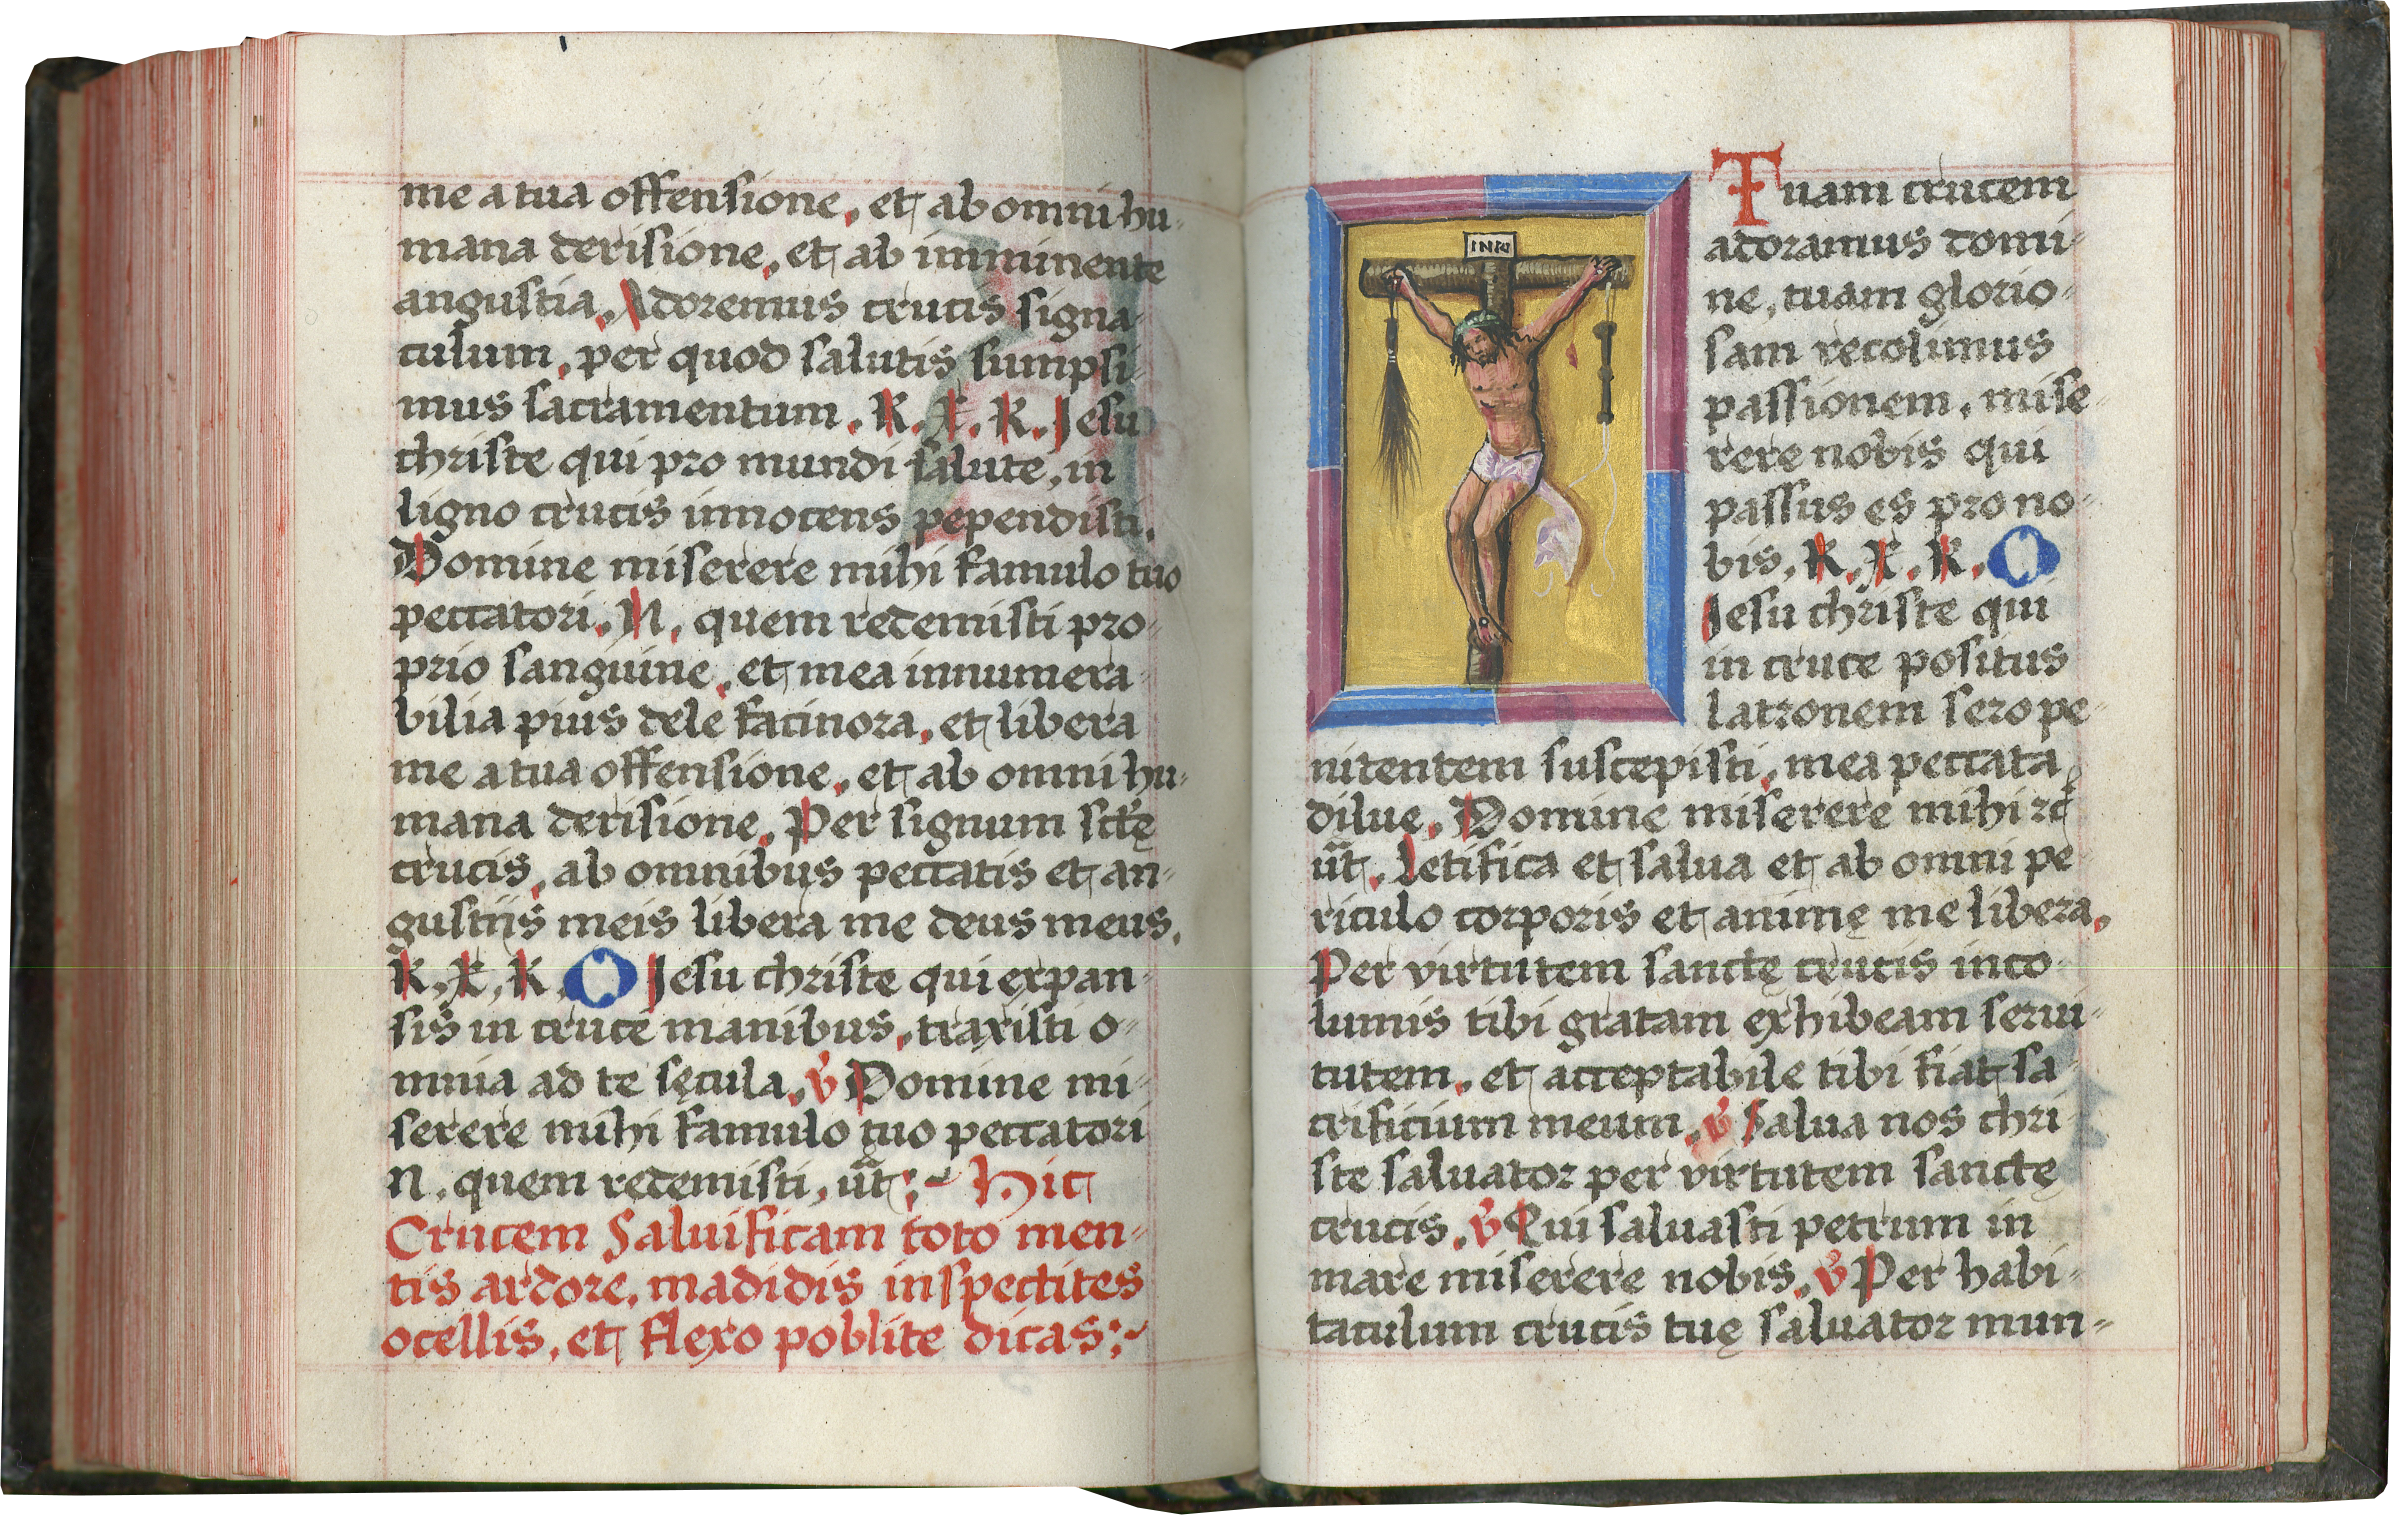 me a tua offensione, et ab omni hu-
mana derisione, et ab imminente
angustia. Adoremus crucis signa-
culum, per quod salutis sumpsi-
mus sacramentum. K. X. K. Jesu
christe qui pro mundi salute, in
ligno crucis innocens pependisti.
Domine miserere mihi famulo tuo
peccatori. N. quem redemisti pro-
prio sanguine, et mea innumera-
bilia pius dele facinora, et libera
me a tua offensione, et ab omni hu-
mana derisione. Per signum sctę
crucis, ab omnibus peccatis et an-
gustiis meis libera me deus meus.
K. X. K. O Jesu christe qui expan-
sis in cruce manibus, traxisti o-
mnia ad te sęcula. v̊ Domine mi-
serere mihi famulo tuo peccatori
N. quem redemisti, ut̃ :~ Hic
Crucem Saluificam toto men-
tis ardore, madidis inspectites
ocellis, et flexo poblite dicas :~
INRI
Tuam crucem
adoramus domi-
ne, tuam glorio-
sam recolimus
passionem, mise-
rere nobis qui
passus es pro no-
bis. K. X. K. O
Jesu christe qui
in cruce positus
latronem sero pe-
nitentem suscepisti, mea peccata
dilue. Domine miserere mihi ꝛc̃
ut̃. Letifica et salua et ab omni pe-
riculo corporis et animę me libera.
Per virtutem sanctę crucis inco-
lumis tibi gratam exhibeam serui-
tutem, et acceptabile tibi fiat sa-
crificium meum. v̊ Salua nos chri-
ste saluator per virtutem sanctę
crucis. v̊ Qui saluasti petrum in
mare miserere nobis. v̊ Per habi-
taculum crucis tuę saluator mun-